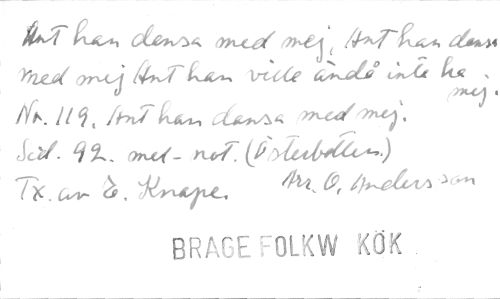 Ant han dansa med mej, Ant han dansa
med mej Ant han ville ändå inte ha
mej.
No. 119. Ant han dansa med mej.
Sid. 92. mel-not. (Österbotten)
Tx. av E. Knape. Arr. O. Andersson
BRAGE FOLKW KÖK